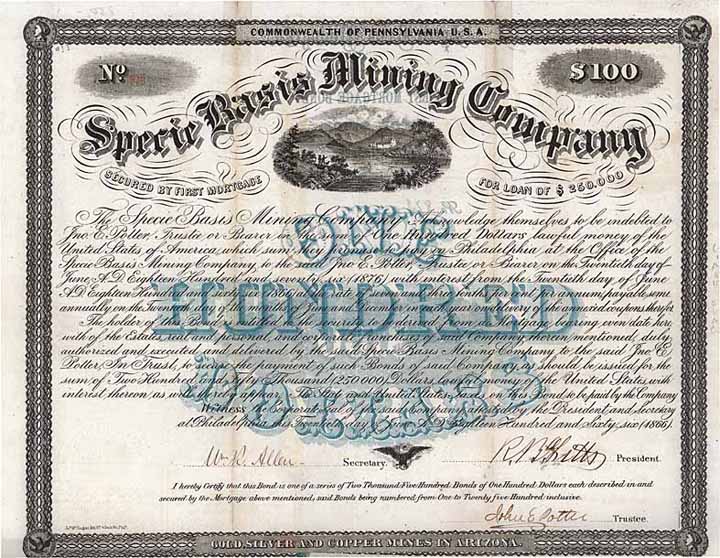 COMMONWEALTH OF PENNSYLVANIA U.S.A.
No
$100
Specie Basis Mining Company
SECURED BY FIRST MORTGAGE
FOR LOAN OF $250.000
The Specie Basis Mining Company acknowledge themselves to be indebted to
Jno E. Potter, Trustee or Bearer in the sum of One Hundred Dollars lawful money of the
United States of America, which sum Philadelphia, at the Office of the
Specie Basis Mining Company, to the said Jno E. Potter, Trustee, or Bearer on the Twentieth day of
June A.D. Eighteen Hundred and seventy six 1876, with interest from the Twentieth day of June
A.D. Eighteen Hundred and sixty six 1866, at the rate of seven and three tenths per cent per annum, payable semi
annually on the Twentieth of the months of June and December in each year on delivery of the annexed coupons therefor.
The holder of this Bond is secured by a Mortgage bearing even date here
with of the Estate, real and personal, and corporate franchises of said Company therein mentioned, duly
authorized and executed and delivered by the said Specie Basis Mining Company to the said Jno E.
Potter, In Trust, to secure the payment of such Bonds of said Company as should be issued for the
sum of Two Hundred and Fifty Thousand (250.000) Dollars, lawful money of the United States, with
interest thereon, as will thereof appear. State and United States Taxes on this Bond to be paid by the Company
Witness the Corporate seal of the said Company attested by the President and Secretary
at Philadelphia this Twentieth day of June A.D. Eighteen Hundred and Sixty six (1866).
ONE
HUNDRED
DOLLARS
W. R. Allen Secretary. President.
I hereby Certify that this Bond is one of a series of Two Thousand Five Hundred Bonds of One Hundred Dollars each described in and
secured by the Mortgage above mentioned, said Bonds being numbered from One to Twenty five Hundred inclusive.
John E Potter Trustee.
GOLD, SILVER AND COPPER MINES IN ARIZONA.